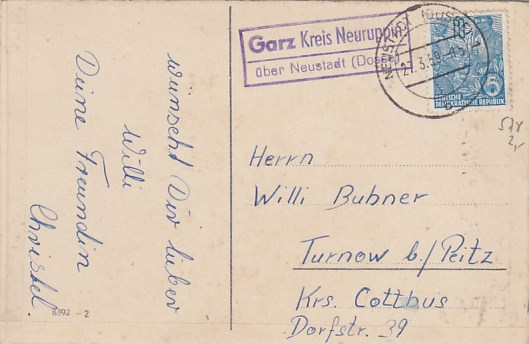 wünscht Dir lieber
Willi
Deine Freundin
Christel.
8392 - 2
Garz Kreis Neuruppin
über Neustadt (Dosse)
27.3.59
DEUTSCHE
DEMOKRATISCHE REPUBLIK
Herrn
Willi Bubner
Turnow b./Peitz
Krs. Cottbus
Dorfstr. 39